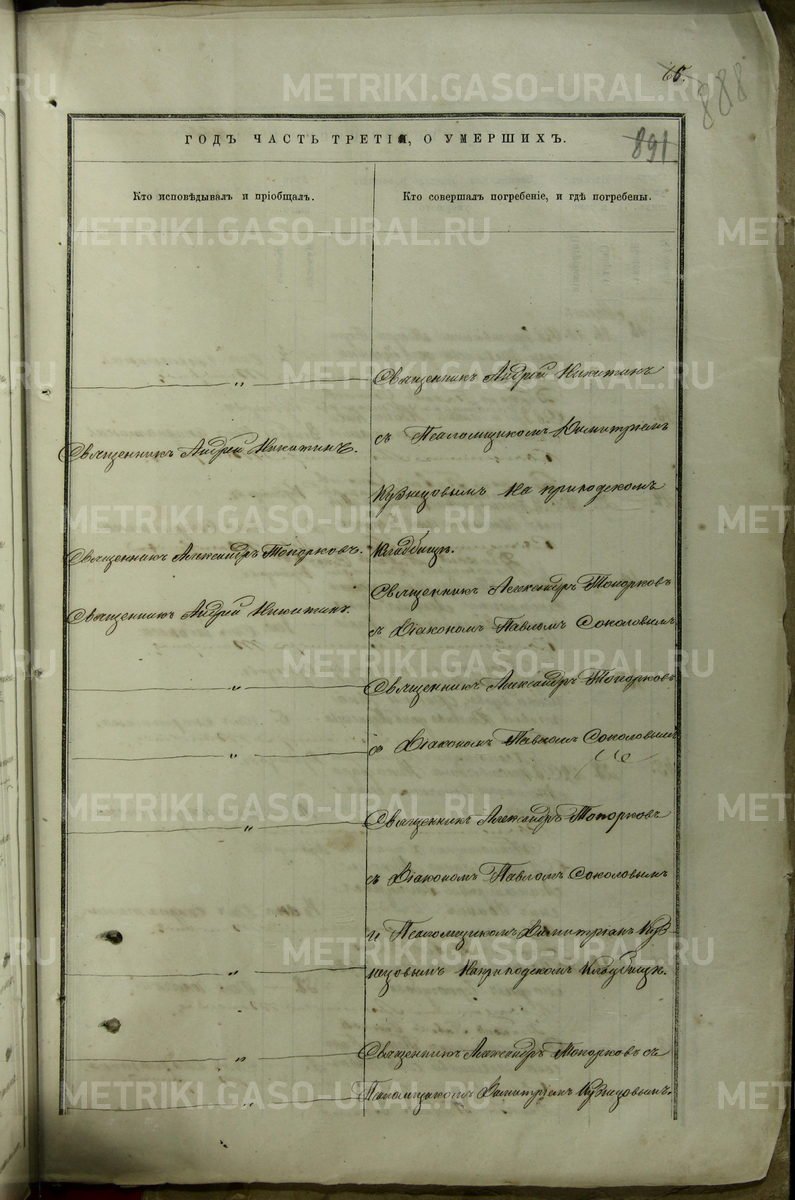 65.
888
891
ГОДЪ ЧАСТЬ ТРЕТІЯ, О УМЕРШИХЪ.
Кто исповѣдывалъ и пріобщалъ.
Кто совершалъ погребеніе, и гдѣ погребены.
„
Священникъ Андрей Никитинъ
Священникъ Андрей Никитинъ.
съ Псаломщикомъ Димитріемъ
Кузнецовымъ на приходскомъ
Священникъ Александръ Топорковъ.
Кладбищѣ.
Священникъ Андрей Никитинъ.
Священникъ Александръ Топорковъ
съ Діакономъ Павломъ Соколовымъ
„
Священникъ Александръ Топорковъ
„
съ Діакономъ Павломъ Соколовымъ
„
Священникъ Александръ Топорковъ
съ Діакономъ Павломъ Соколовымъ
и Псаломщикомъ Димитріемъ Куз-
„
нецовымъ на приходскомъ Кладбищѣ.
„
Священникъ Александръ Топорковъ съ
„
Псаломщикомъ Димитріемъ Кузнецовымъ.
METRIKI.GASO-URAL.RU